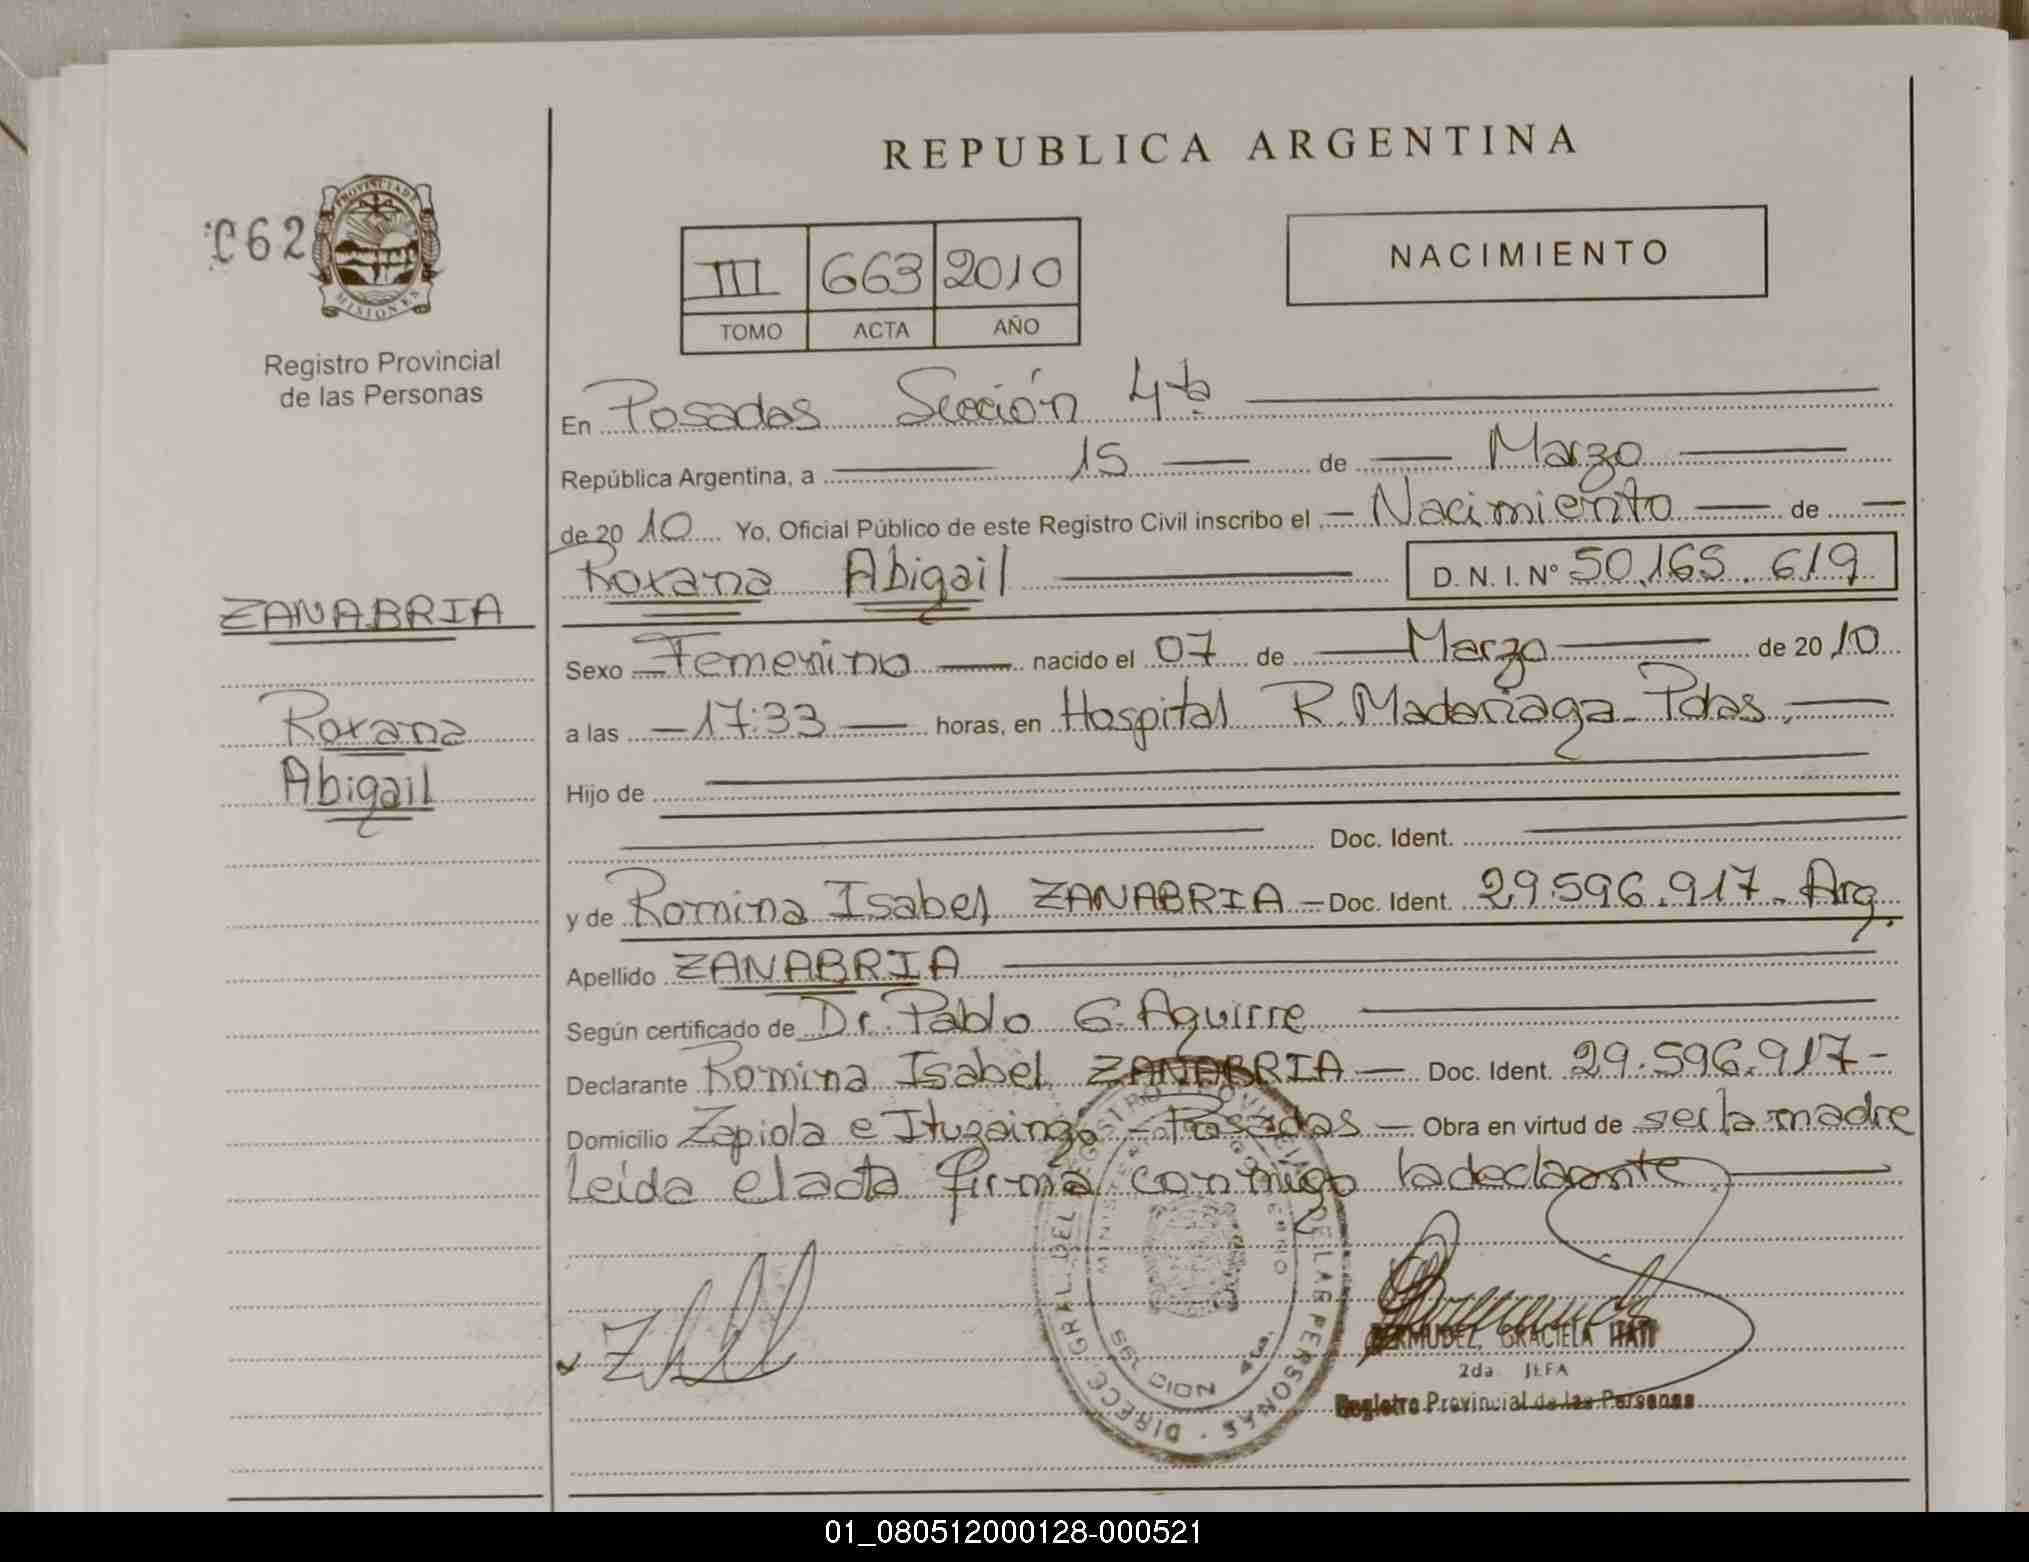 REPUBLICA ARGENTINA
062
PROVINCIA DE
MISIONES
Registro Provincial
de las Personas
III 663 2010
TOMO ACTA AÑO
NACIMIENTO
En Posadas Sección 4ta
República Argentina, a 15 de Marzo
de 2010 Yo, Oficial Público de este Registro Civil inscribo el Nacimiento de
Roxana Abigail D. N. I. Nº 50.165.619
ZANABRIA
Roxana
Abigail
Sexo Femenino nacido el 07 de Marzo de 2010
a las 17:33 horas, en Hospital R. Madariaga Pdas.
Hijo de
Doc. Ident.
y de Romina Isabel ZANABRIA Doc. Ident. 29.596.917 - Arg.
Apellido ZANABRIA
Según certificado de Dr. Pablo G. Aguirre
Declarante Romina Isabel ZANABRIA Doc. Ident. 29.596.917-
Domicilio Zapiola e Ituzaingo - Posadas Obra en virtud de ser la madre
Leida el acta firma conmigo la declarante
DIRECC. GRAL. DEL REGISTRO PROVINCIAL DE LAS PERSONAS
MINISTERIO GOBIERNO
BERMUDEZ, GRACIELA ITATI
2da JEFA
Registro Provincial de las Personas
01_080512000128-000521